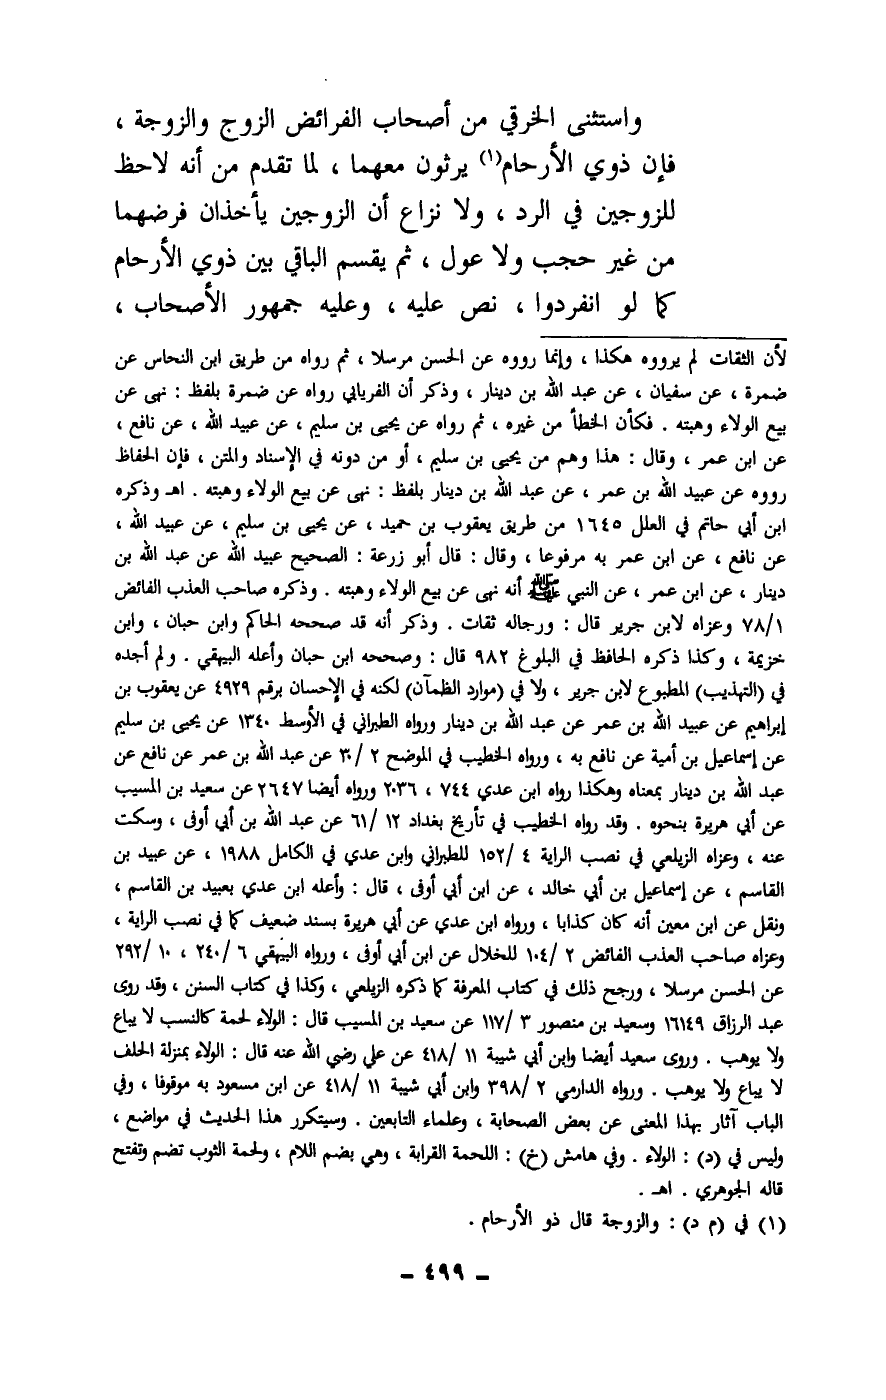 واستثنى الخرقي من أصحاب الفرائض الزوج والزوجة ،
فإن ذوي الأرحام(١) يرثون معهما ، لما تقدم من أنه لاحظ
للزوجين في الرد ، ولا نزاع أن الزوجين يأخذان فرضهما
من غير حجب ولا عول ، ثم يقسم الباقي بين ذوي الأرحام
كما لو انفردوا ، نص عليه ، وعليه جمهور الأصحاب ،
لأن الثقات لم يرووه هكذا ، وإنما رووه عن الحسن مرسلا ، ثم رواه من طريق ابن النحاس عن
ضمرة ، عن سفيان ، عن عبد الله بن دينار ، وذكر أن الفريابي رواه عن ضمرة بلفظ : نهى عن
بيع الولاء وهبته . فكأن الخطأ من غيره ، ثم رواه عن يحيى بن سليم ، عن عبيد الله ، عن نافع ،
عن ابن عمر ، وقال : هذا وهم من يحيى بن سليم ، أو من دونه في الإسناد والمتن ، فإن الحفاظ
رووه عن عبيد الله بن عمر ، عن عبد الله بن دينار بلفظ : نهى عن بيع الولاء وهبته . اهـ وذكره
ابن أبي حاتم في العلل ١٦٤٥ من طريق يعقوب بن حميد ، عن يحيى بن سليم ، عن عبيد الله ،
عن نافع ، عن ابن عمر به مرفوعا ، وقال : قال أبو زرعة : الصحيح عبيد الله عن عبد الله بن
دينار ، عن ابن عمر ، عن النبي ﷺ أنه نهى عن بيع الولاء وهبته . وذكره صاحب العذب الفائض
٧٨/١ وعزاه لابن جرير قال : ورجاله ثقات . وذكر أنه قد صححه الحاكم وابن حبان ، وابن
خزيمة ، وكذا ذكره الحافظ في البلوغ ٩٨٢ قال : وصححه ابن حبان وأعله البيهقي . ولم أجده
في (التهذيب) المطبوع لابن جرير ، ولا في (موارد الظمآن) لكنه في الإحسان برقم ٤٩٢٩ عن يعقوب بن
إبراهيم عن عبيد الله بن عمر عن عبد الله بن دينار ورواه الطبراني في الأوسط ١٣٤٠ عن يحيى بن سليم
عن إسماعيل بن أمية عن نافع به ، ورواه الخطيب في الموضح ٢ /٣٠ عن عبد الله بن عمر عن نافع عن
عبد الله بن دينار بمعناه وهكذا رواه ابن عدي ٧٤٤ ، ٢٠٣٦ ورواه أيضا ٢٦٤٧ عن سعيد بن المسيب
عن أبي هريرة بنحوه . وقد رواه الخطيب في تأريخ بغداد ١٢ /٦١ عن عبد الله بن أبي أوفى ، وسكت
عنه ، وعزاه الزيلعي في نصب الراية ٤ /١٥٢ للطبراني وابن عدي في الكامل ١٩٨٨ ، عن عبيد بن
القاسم ، عن إسماعيل بن أبي خالد ، عن ابن أبي أوفى ، قال : وأعله ابن عدي بعبيد بن القاسم ،
ونقل عن ابن معين أنه كان كذابا ، ورواه ابن عدي عن أبي هريرة بسند ضعيف كما في نصب الراية ،
وعزاه صاحب العذب الفائض ٢ /١٠٤ للخلال عن ابن أبي أوفى ، ورواه البيهقي ٦ /٢٤٠ ، ١٠ /٢٩٢
عن الحسن مرسلا ، ورجح ذلك في كتاب المعرفة كما ذكره الزيلعي ، وكذا في كتاب السنن ، وقد روى
عبد الرزاق ١٦١٤٩ وسعيد بن منصور ٣ /١١٧ عن سعيد بن المسيب قال : الولاء لحمة كالنسب لا يباع
ولا يوهب . وروى سعيد أيضا وابن أبي شيبة ١١ /٤١٨ عن علي رضي الله عنه قال : الولاء بمنزلة الحلف
لا يباع ولا يوهب . ورواه الدارمي ٢ /٣٩٨ وابن أبي شيبة ١١ /٤١٨ عن ابن مسعود به موقوفا ، وفي
الباب آثار بهذا المعنى عن بعض الصحابة ، وعلماء التابعين . وسيتكرر هذا الحديث في مواضع ،
وليس في (د) : الولاء . وفي هامش (خ) : اللحمة القرابة ، وهي بضم اللام ، ولحمة الثوب تضم وتفتح
قاله الجوهري . اهـ .
(١) في (م د) : والزوجة قال ذو الأرحام .
ـ ٤٩٩ ـ